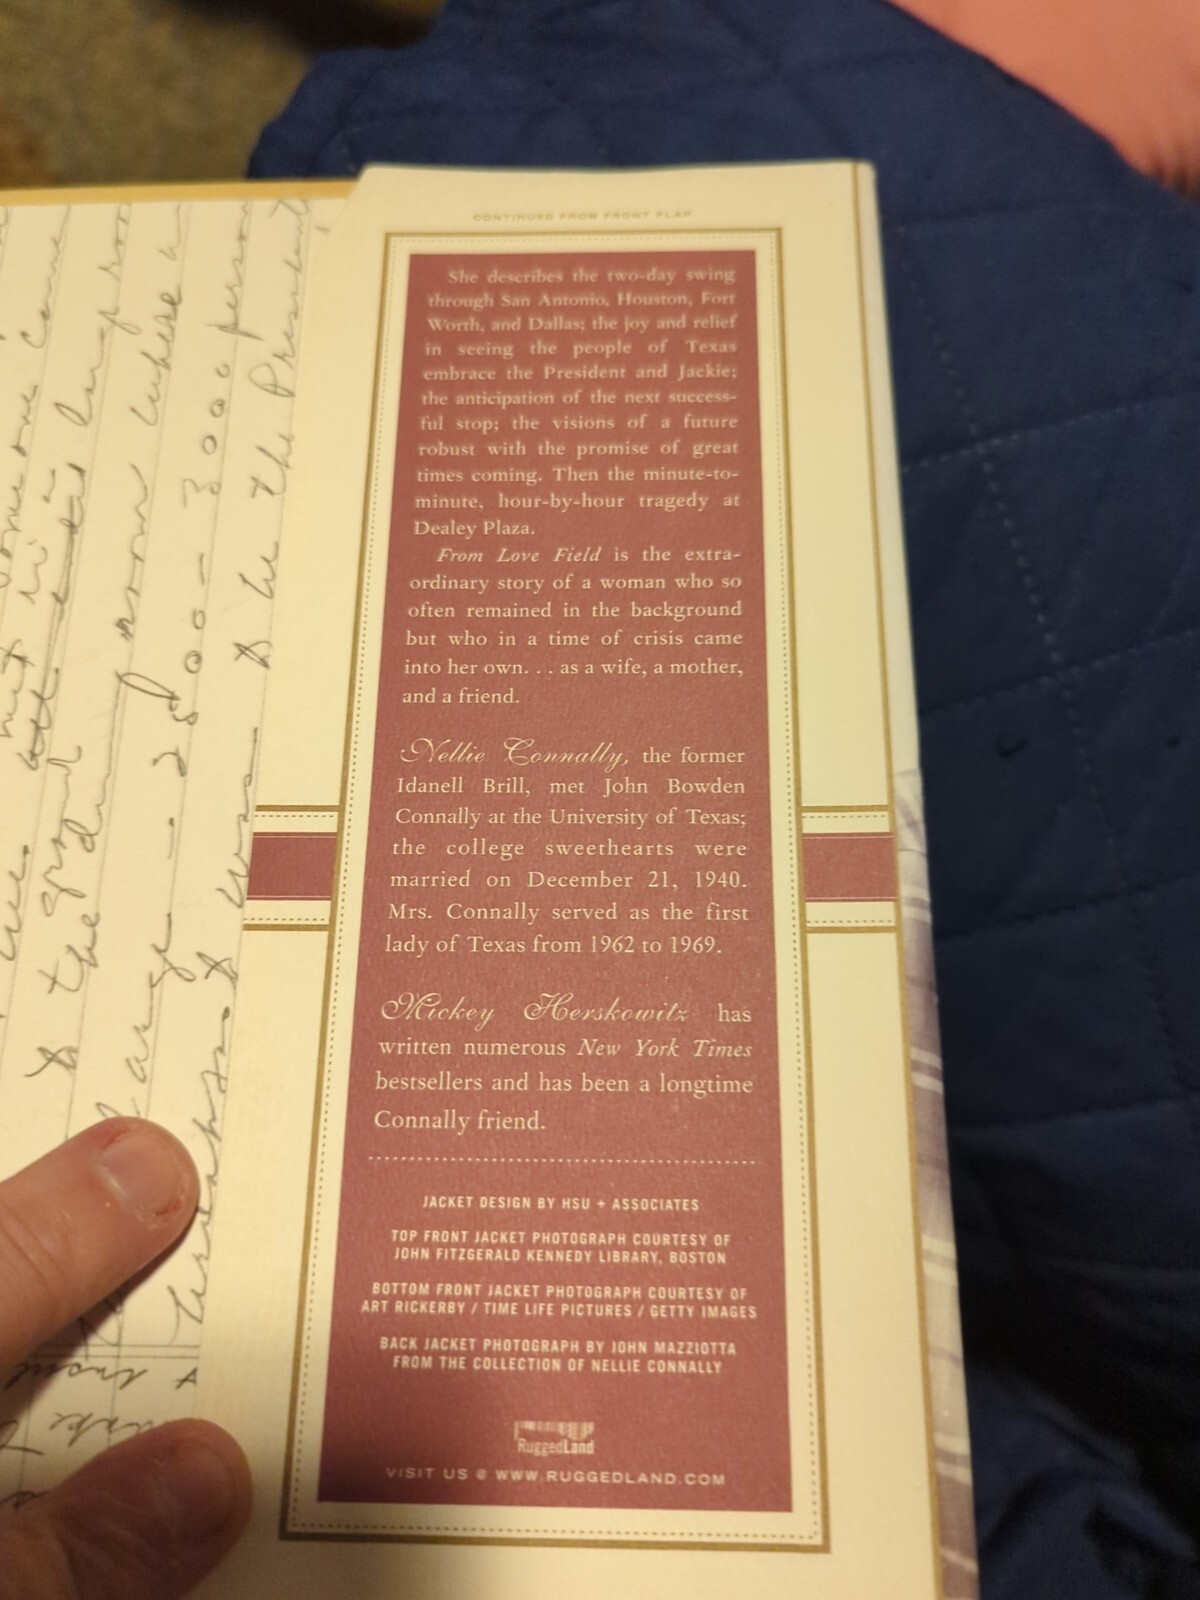 CONTINUED FROM FRONT FLAP
She describes the two-day swing
through San Antonio, Houston, Fort
Worth, and Dallas; the joy and relief
in seeing the people of Texas
embrace the President and Jackie;
the anticipation of the next success-
ful stop; the visions of a future
robust with the promise of great
times coming. Then the minute-to-
minute, hour-by-hour tragedy at
Dealey Plaza.
From Love Field is the extra-
ordinary story of a woman who so
often remained in the background
but who in a time of crisis came
into her own. . . as a wife, a mother,
and a friend.
Nellie Connally, the former
Idanell Brill, met John Bowden
Connally at the University of Texas;
the college sweethearts were
married on December 21, 1940.
Mrs. Connally served as the first
lady of Texas from 1962 to 1969.
Mickey Herskowitz has
written numerous New York Times
bestsellers and has been a longtime
Connally friend.
JACKET DESIGN BY HSU + ASSOCIATES
TOP FRONT JACKET PHOTOGRAPH COURTESY OF
JOHN FITZGERALD KENNEDY LIBRARY, BOSTON
BOTTOM FRONT JACKET PHOTOGRAPH COURTESY OF
ART RICKERBY / TIME LIFE PICTURES / GETTY IMAGES
BACK JACKET PHOTOGRAPH BY JOHN MAZZIOTTA
FROM THE COLLECTION OF NELLIE CONNALLY
RuggedLand
VISIT US @ WWW.RUGGEDLAND.COM
someone came
the grand
to the dining room where a
large - 2500 - 3000 person
was to be the President